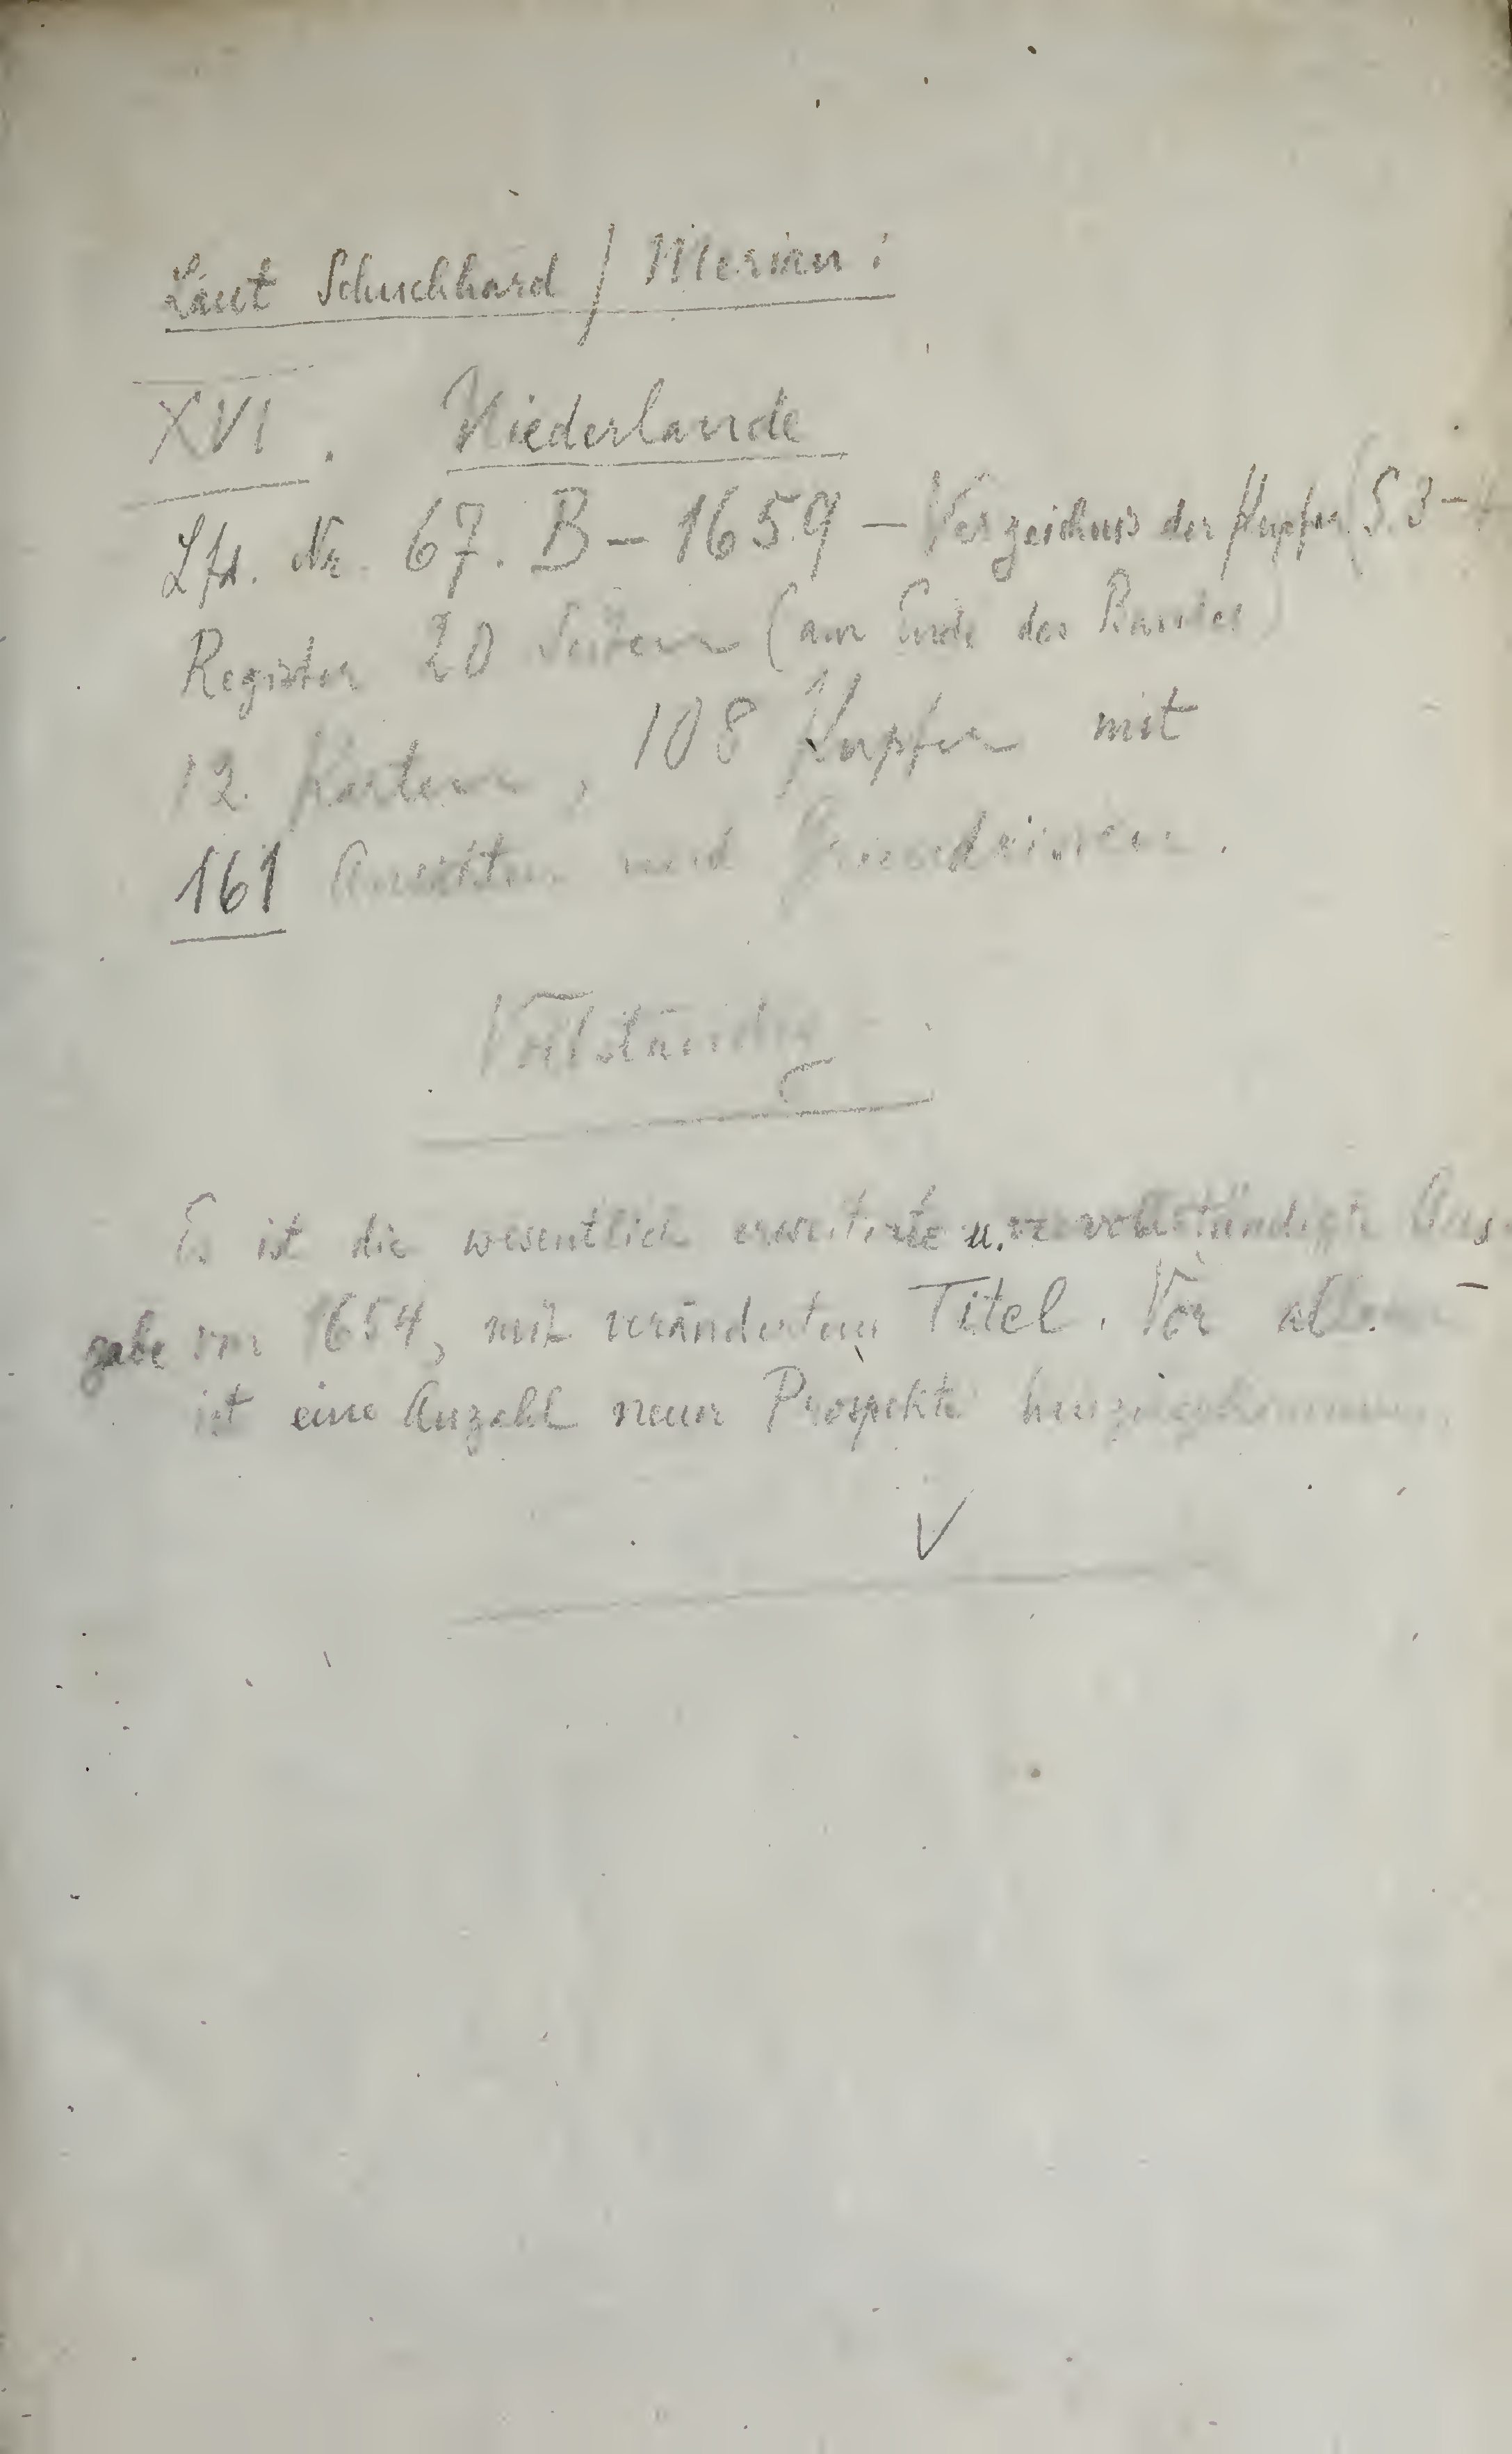 Laut Schuchhard / Merian :
XVI . Niederlande
Lfd. Nr. 67. B - 1659 - Verzeichnis der Kupfer (S. 3 -
Register 20 Seiten (am Ende des Bandes)
12 Karten , 108 Kupfer mit
161 Ansichten und Grundrissen .
Vollständig
Es ist die wesentlich erweiterte u. vervollständigte Aus-
gabe von 1654, mit verändertem Titel . Vor allem
ist eine Anzahl neuer Prospekte hinzugekommen.